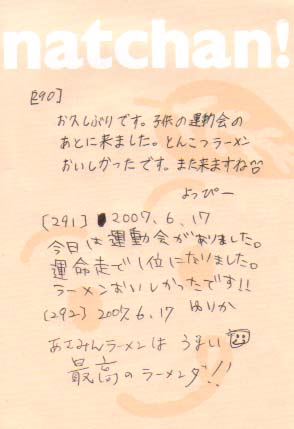 natchan!
[290]
お久しぶりです。子供の運動会の
あとに来ました。とんこつラーメン
おいしかったです。また来ますね
よっぴー
[291] 2007.6.17
今日は運動会がありました。
運命走で1位になりました。
ラーメンおいしかったです!!
(292) 2007.6.17 ゆりか
あさみんラーメンは うまい
最高のラーメンダ!!